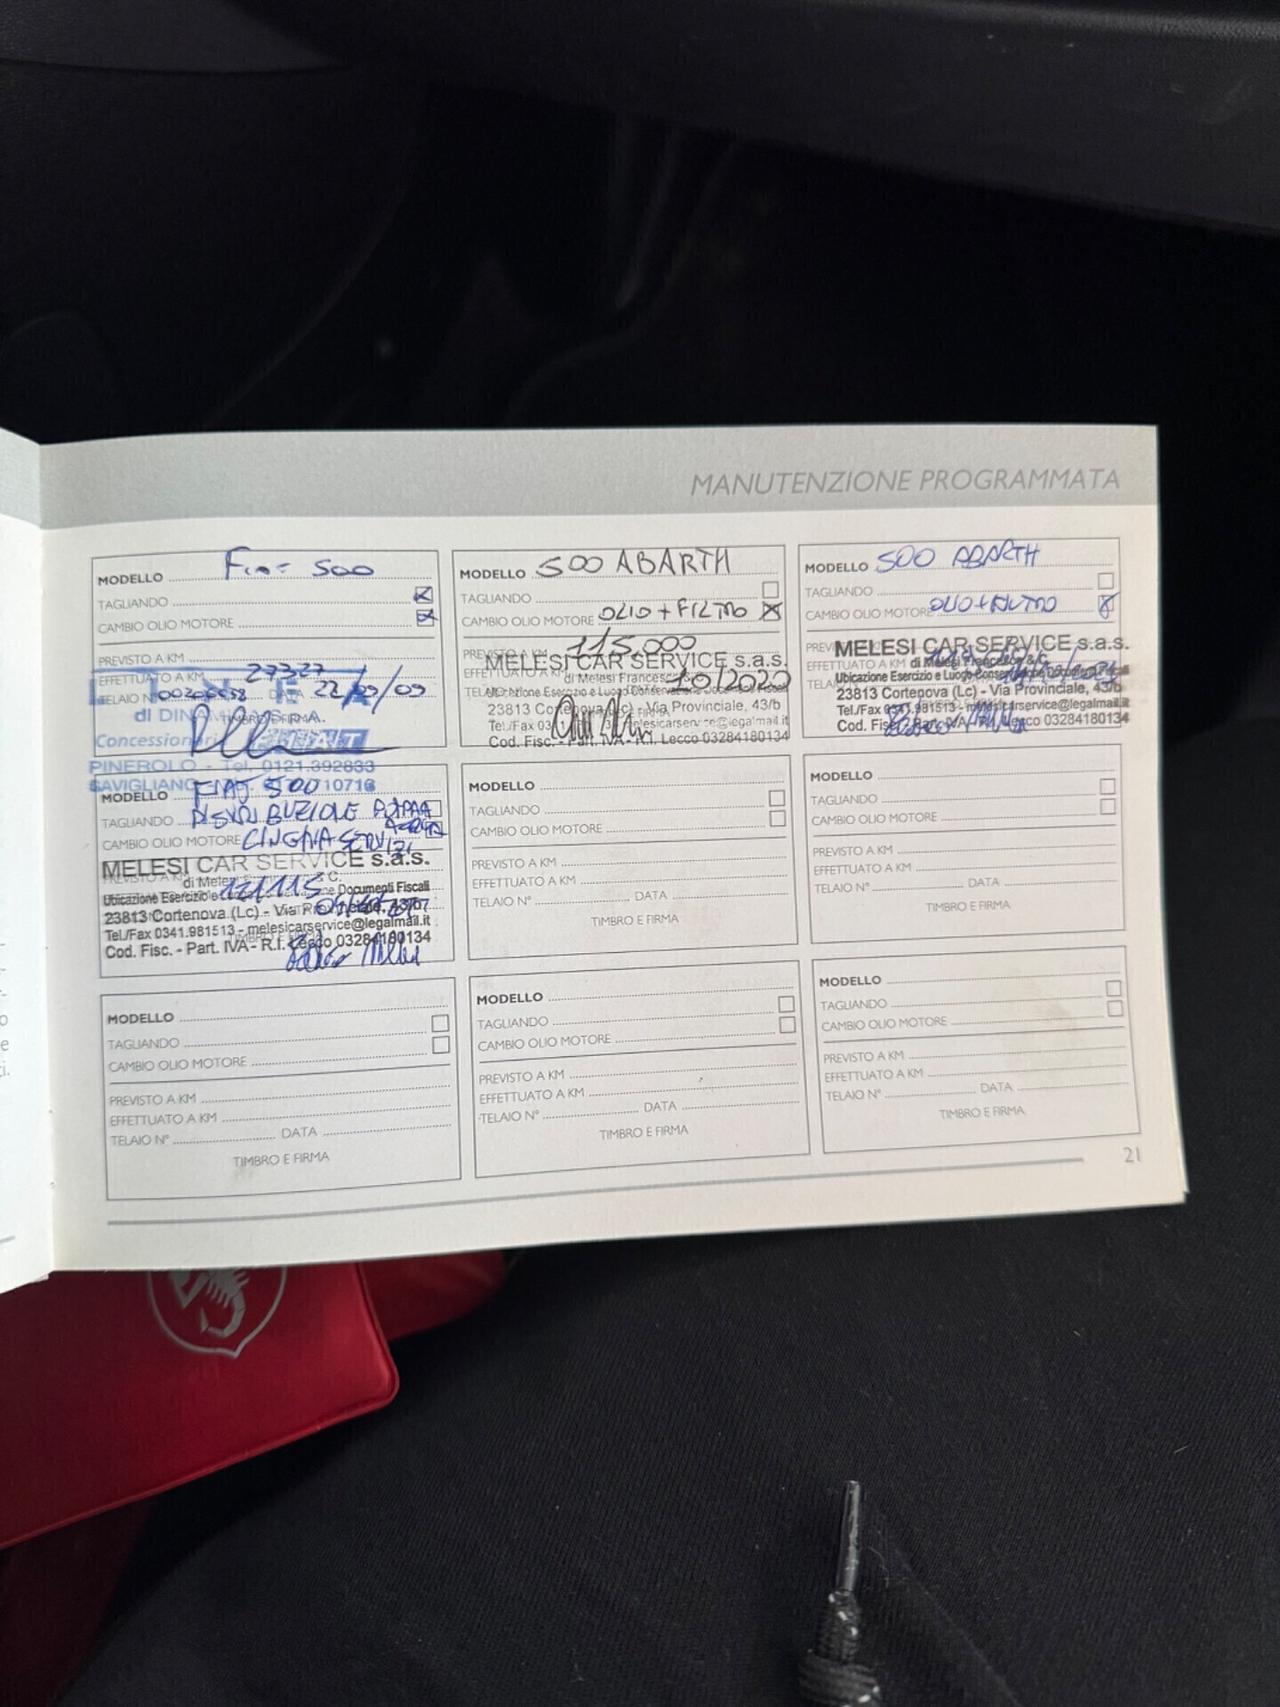 MANUTENZIONE PROGRAMMATA
MODELLO Fiat 500
TAGLIANDO
CAMBIO OLIO MOTORE
PREVISTO A KM
EFFETTUATO A KM 27327
TELAIO N° DATA 22/09/09
di DINA TIMBRO E FIRMA
Concessionari FIAT
PINEROLO - Tel. 0121.392833
SAVIGLIANO 10716
MODELLO 500 ABARTH
TAGLIANDO
CAMBIO OLIO MOTORE OLIO + FILTRO
PREVISTO A KM 115.000
MELESI CAR SERVICE s.a.s.
EFFETTUATO A KM di Melesi Francesca
10/2020
Ubicazione Esercizio e Luogo Conservazione Documenti Fiscali
23813 Cortenova (Lc) - Via Provinciale, 43/b
Tel./Fax 03 melesicarservice@legalmail.it
Cod. Fisc. - Part. IVA - R.I. Lecco 03284180134
MODELLO 500 ABARTH
TAGLIANDO
CAMBIO OLIO MOTORE OLIO + FILTRO
MELESI CAR SERVICE s.a.s.
EFFETTUATO A KM di Melesi Francesca & C.
Ubicazione Esercizio e Luogo Conservazione Documenti Fiscali
23813 Cortenova (Lc) - Via Provinciale, 43/b
Tel./Fax 0341.981513 - melesicarservice@legalmail.it
Cod. Fisc. - Part. IVA - R.I. Lecco 03284180134
MODELLO FIAT 500
TAGLIANDO DISTRIBUZIONE POMPA
ACQUA
CAMBIO OLIO MOTORE CINGHIA SERVIZI
MELESI CAR SERVICE s.a.s.
di Melesi & C.
121115
Ubicazione Esercizio e Luogo Conservazione Documenti Fiscali
23813 Cortenova (Lc) - Via Provinciale, 43/b
Tel./Fax 0341.981513 - melesicarservice@legalmail.it
Cod. Fisc. - Part. IVA - R.I. Lecco 03284180134
MODELLO
TAGLIANDO
CAMBIO OLIO MOTORE
PREVISTO A KM
EFFETTUATO A KM
TELAIO N° DATA
TIMBRO E FIRMA
MODELLO
TAGLIANDO
CAMBIO OLIO MOTORE
PREVISTO A KM
EFFETTUATO A KM
TELAIO N° DATA
TIMBRO E FIRMA
MODELLO
TAGLIANDO
CAMBIO OLIO MOTORE
PREVISTO A KM
EFFETTUATO A KM
TELAIO N° DATA
TIMBRO E FIRMA
MODELLO
TAGLIANDO
CAMBIO OLIO MOTORE
PREVISTO A KM
EFFETTUATO A KM
TELAIO N° DATA
TIMBRO E FIRMA
MODELLO
TAGLIANDO
CAMBIO OLIO MOTORE
PREVISTO A KM
EFFETTUATO A KM
TELAIO N° DATA
TIMBRO E FIRMA
21